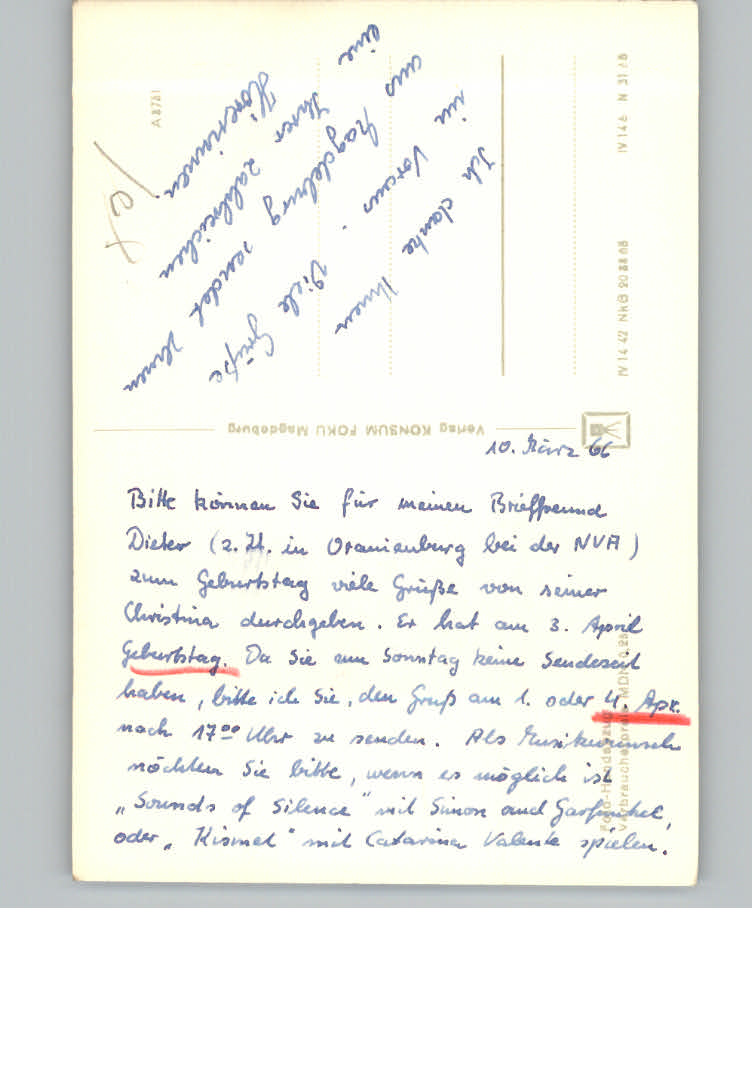 10. März 66
Bitte können Sie für meinen Brieffreund
Dieter (z. Zt. in Oranienburg bei der NVA)
zum Geburtstag viele Grüße von seiner
Christina durchgeben. Er hat am 3. April
Geburtstag. Da Sie am Sonntag keine Sendezeit
haben, bitte ich Sie, den Gruß am 1. oder 4. Apr.
nach 17⁰⁰ Uhr zu senden. Als Musikwunsch
möchten Sie bitte, wenn es möglich ist
„Sounds of Silence" mit Simon and Garfunkel,
oder „Kismet" mit Catarina Valente spielen.
Ich danke Ihnen
im Voraus. Viele Grüße
aus Magdeburg sendet Ihnen
eine Ihrer zahlreichen
Hörerinnen.
Verlag KONSUM FOKU Magdeburg
A 8781
IV 14 42 NkG 20 88 68
IV 14 6 N 31 68
Foto-Handabzug
Verbraucherpreis MDN 0,25